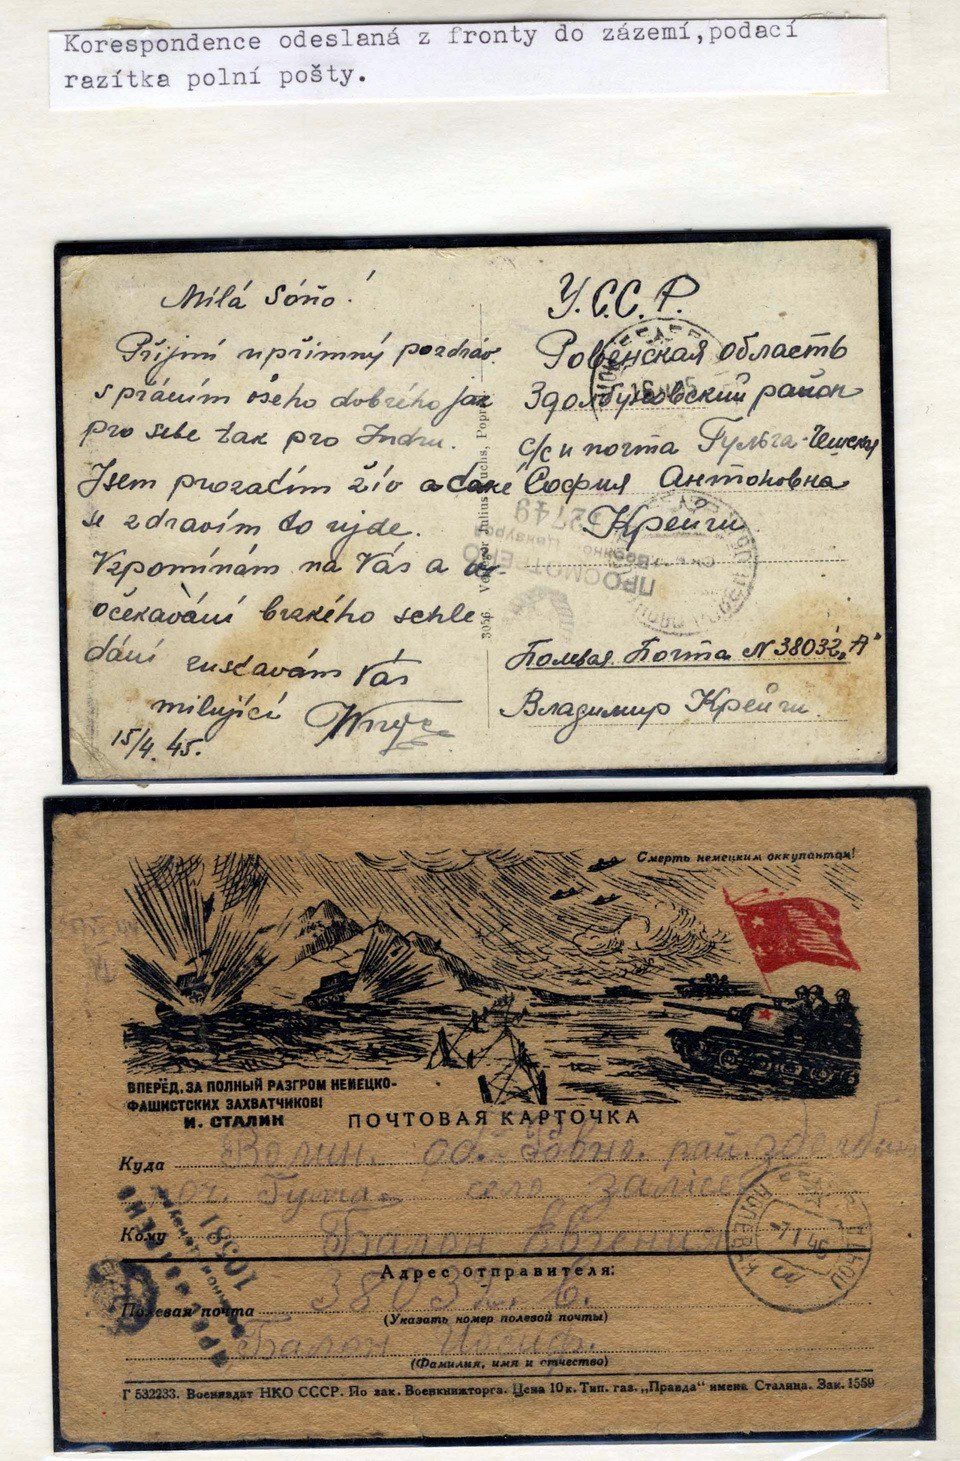 Korespondence odeslaná z fronty do zázemí,podací
razítka polní pošty.
Milá Sóňo!
Přijmi upřímný pozdrav
s přáním všeho dobrého jak
pro sebe tak pro Jndru.
Jsem prozatím živ a také
se zdravím to ujde.
Vzpomínám na Vás a
očekávání brzkého schle
dání zustavám Vás
milující
15/4. 45.
3056. Verleger Julius Fuchs, Popr
У.С.С.Р.
Ровенская область
Здолбуновский район
с/с и почта Гульча-Чешская
София Антоновна
Крейчи
ПРОСМОТРЕНО
Военной Цензурой
22749
Полевая Почта N 38032 „А"
Владимир Крейчи
Смерть немецким оккупантам!
ВПЕРЁД, ЗА ПОЛНЫЙ РАЗГРОМ НЕМЕЦКО-
ФАШИСТСКИХ ЗАХВАТЧИКОВ!
И. СТАЛИН
ПОЧТОВАЯ КАРТОЧКА
Куда Волин. об. Ровно. рай.
село
Кому Балон Евгения
10581
7 1 45
Адрес отправителя:
Полевая почта 38032.
(Указать номер полевой почты)
Балон Иосиф.
(Фамилия, имя и отчество)
Г 532233. Воениздат НКО СССР. По зак. Военкнижторга. Цена 10 к. Тип. газ. „Правда" имени Сталина. Зак. 1559